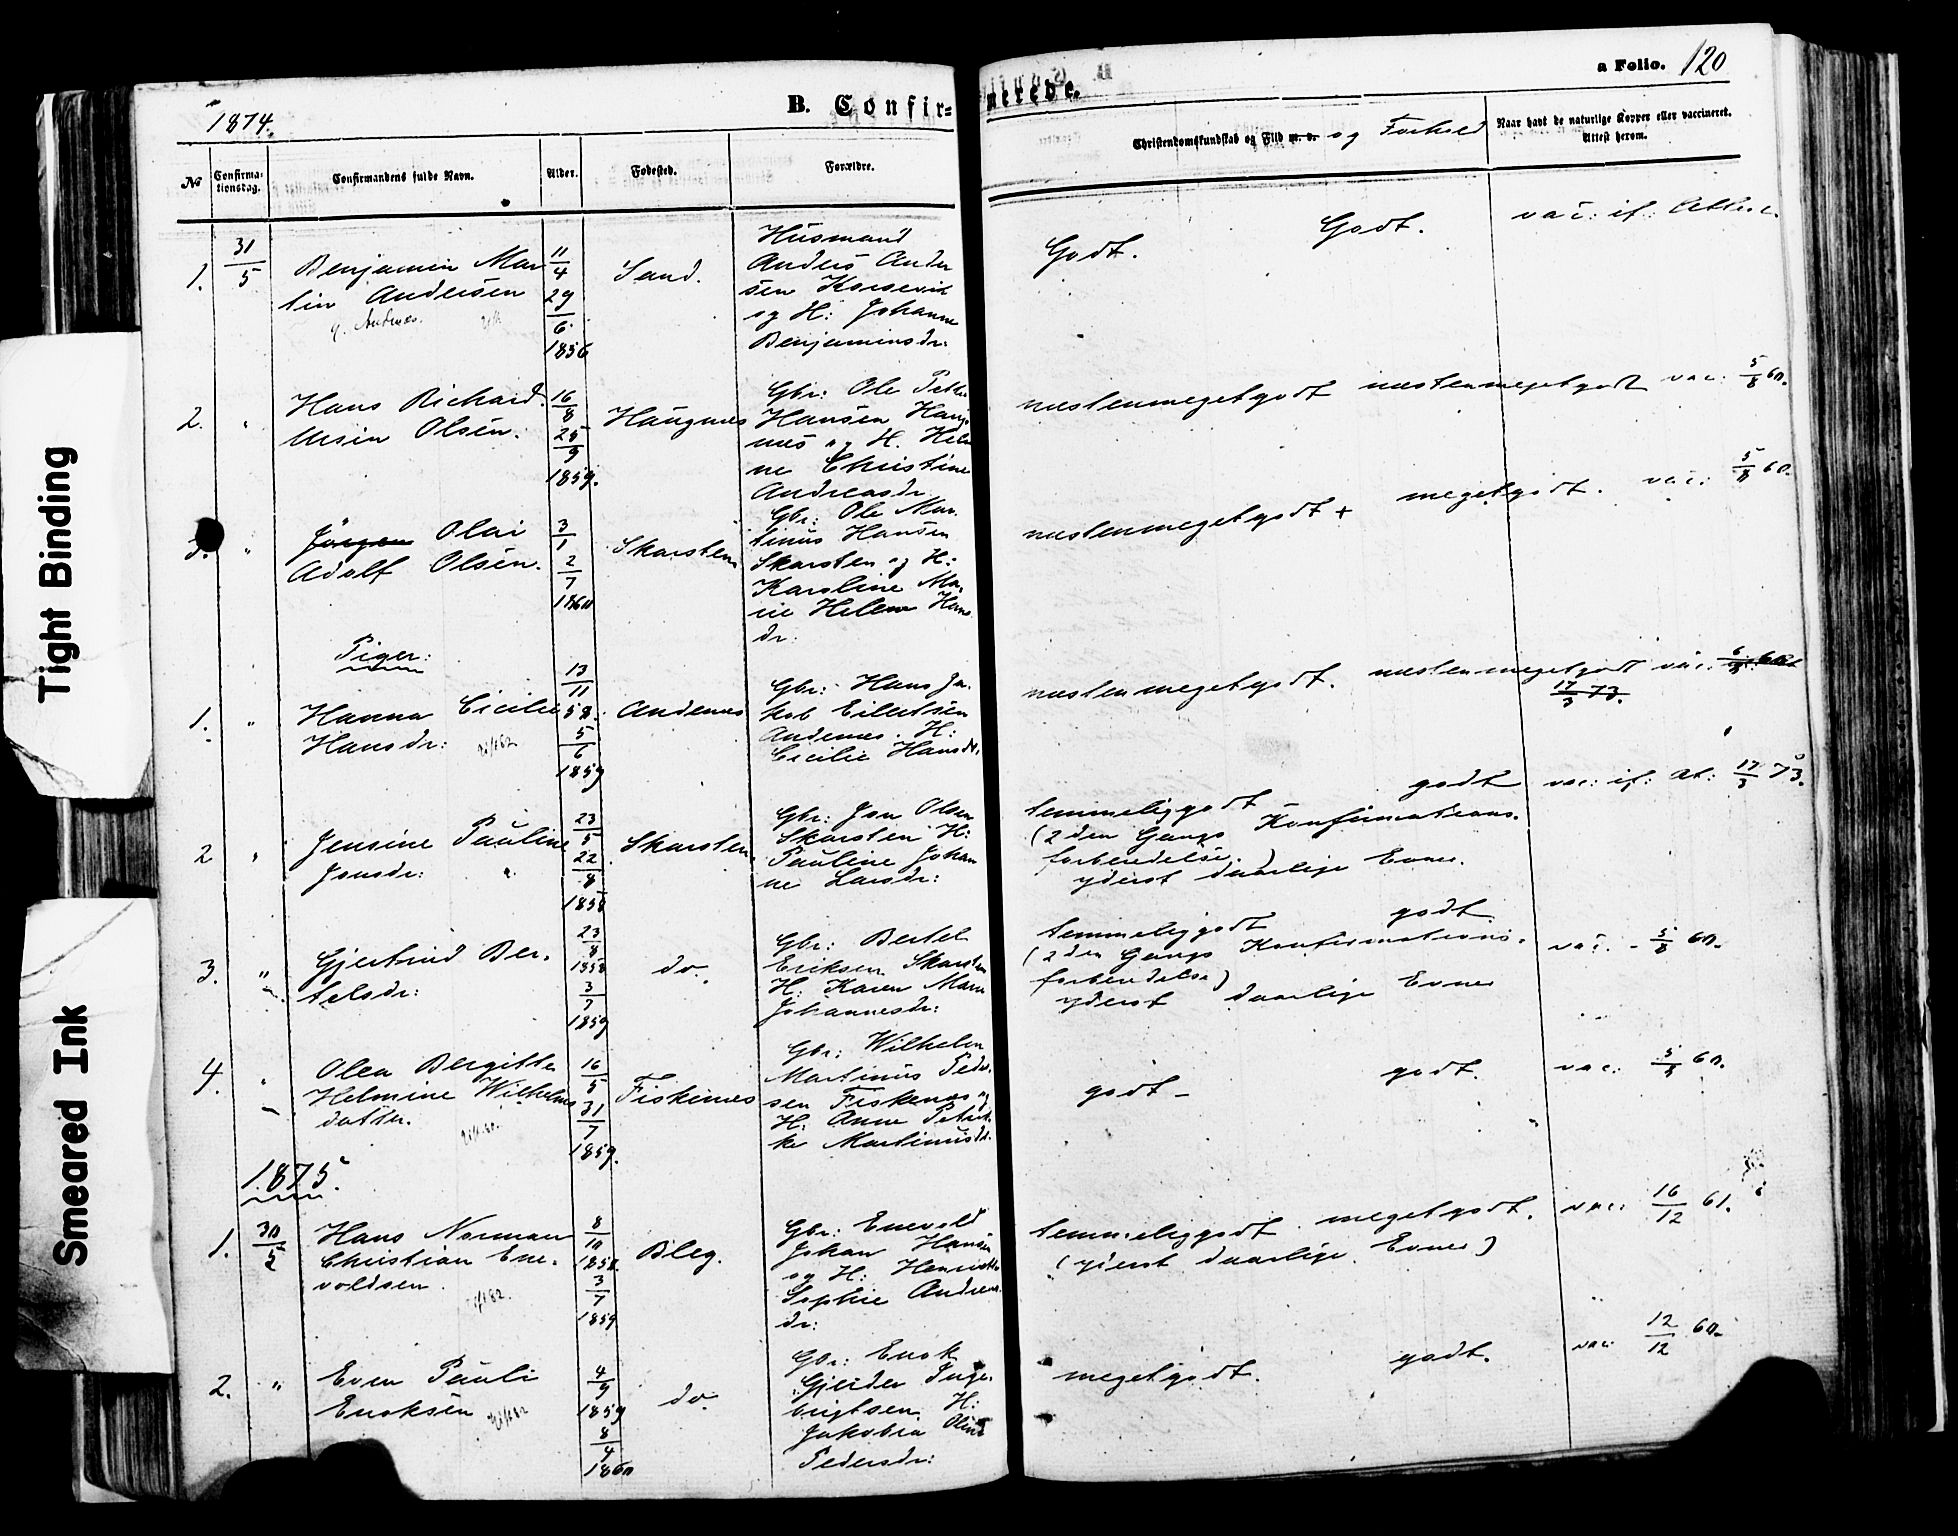 1874.
B. Confir=
merede.
a Folio. 120
No
Confirma-
tionsdag.
Confirmandens fulde Navn.
Alder.
Fødested.
Forældre.
Christendomskundskab og Flid m. v. og Forhold
Naar havt de naturlige Kopper eller vaccineret.
Attest herom.
1. 31/5
Benjamin Mar
tin Andersen
11/4
29/6
1856
Sand.
Husmand
Anders Ander
sen
og H: Johanne
Benjaminsdr:
Godt.
Godt.
vac: if:
2. "
Hans Richard
Olsen.
16/8
25/9
1859.
Haugnes
Gbr: Ole
Hansen Haug
nes og H.
ne Christine
Andreasdr
næstenmegetgodt
næstenmegetgodt
vac: 5/8 60.
3. "
Jörgen Olai
Adolf Olsen.
3/1
2/7
1860
Skarsten
Gbr: Ole Mar
tinus Hansen
Skarsten og H:
Karoline Ma
rie Helene Hans
dr:
næstenmegetgodt +
megetgodt.
vac: 5/8 60.
Piger:
1. "
Hanna Cicilie
Hansdr:
13/11
58.
5/6
1859
Andenes
Gbr: Hans Ja
kob Eilertsen
Andenes. H:
Cicilie Hansdr.
næstenmegetgodt.
næstenmegetgodt
vac:
17/3 73.
2 "
Jensine Pauline
Jonsdr:
23/5
22/8
1858
Skarsten.
Gbr: Jon Olsen
Skarsten H:
Pauline Johan
ne Larsdr:
temmeliggodt
godt
(2den Gangs Konfirmations-
forberedelse.)
yderst daarlige Evner.
vac: if: At: 17/3 73.
3. "
Gjertrud Ber-
telsdr:
23/8
1858
3/7
1859
do.
Gbr: Bertel
Eriksen Skarsten
H: Karen Marie
Johannesdr:
temmeliggodt
godt.
(2den Gangs Konfirmations-
forberedelse)
yderst daarlige Evner
vac. - 5/8 60.
4. "
Olea Bergitte
Helmine Wilhelms
datter.
16/5
31/7
1859.
Fiskenes
Gbr: Wilhelm
Martinus Peder
sen Fiskenes og
H: Anne Petrik
ke Martinusdr.
godt -
godt.
vac: 5/8 60.
1875.
1. 30/5
Hans Norman
Christian Ene-
voldsen.
8/10
1858
3/7
1859
Bleg.
Gbr: Enevold
Johan Hansen
og H: Henriette
Sophie Andreas
dr:
temmeliggodt
megetgodt.
(yderst daarlige Evner)
vac: 16/12 61.
2. "
Even Pauli
Enoksen
4/9
1859
8/4
1860
do.
Gbr: Enok
Gjerder Inge-
brigtsen. H:
Jakobia Oline
Pedersdr:
megetgodt.
godt.
vac: 12/12 60.
Tight Binding
Smeared Ink